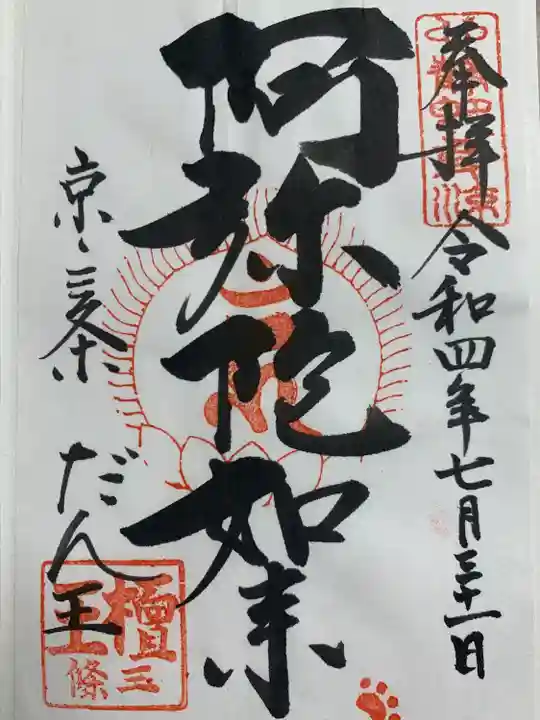 奉拝 令和四年七月三十一日
阿弥陀如来
京、三条 だん王
檀王
三條